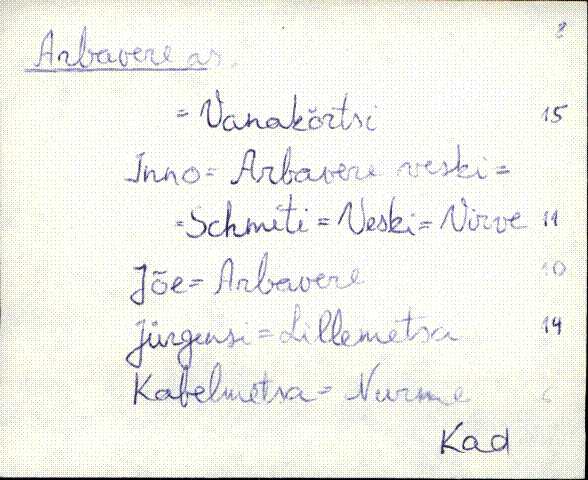 Arbavere as.
= Vanakõrtsi 15
Inno = Arbavere veski =
= Schmiti = Veski = Virve 11
Jõe = Arbavere 10
Jürgensi = Lillemetsa 14
Kabelmetsa = Nurme
Kad